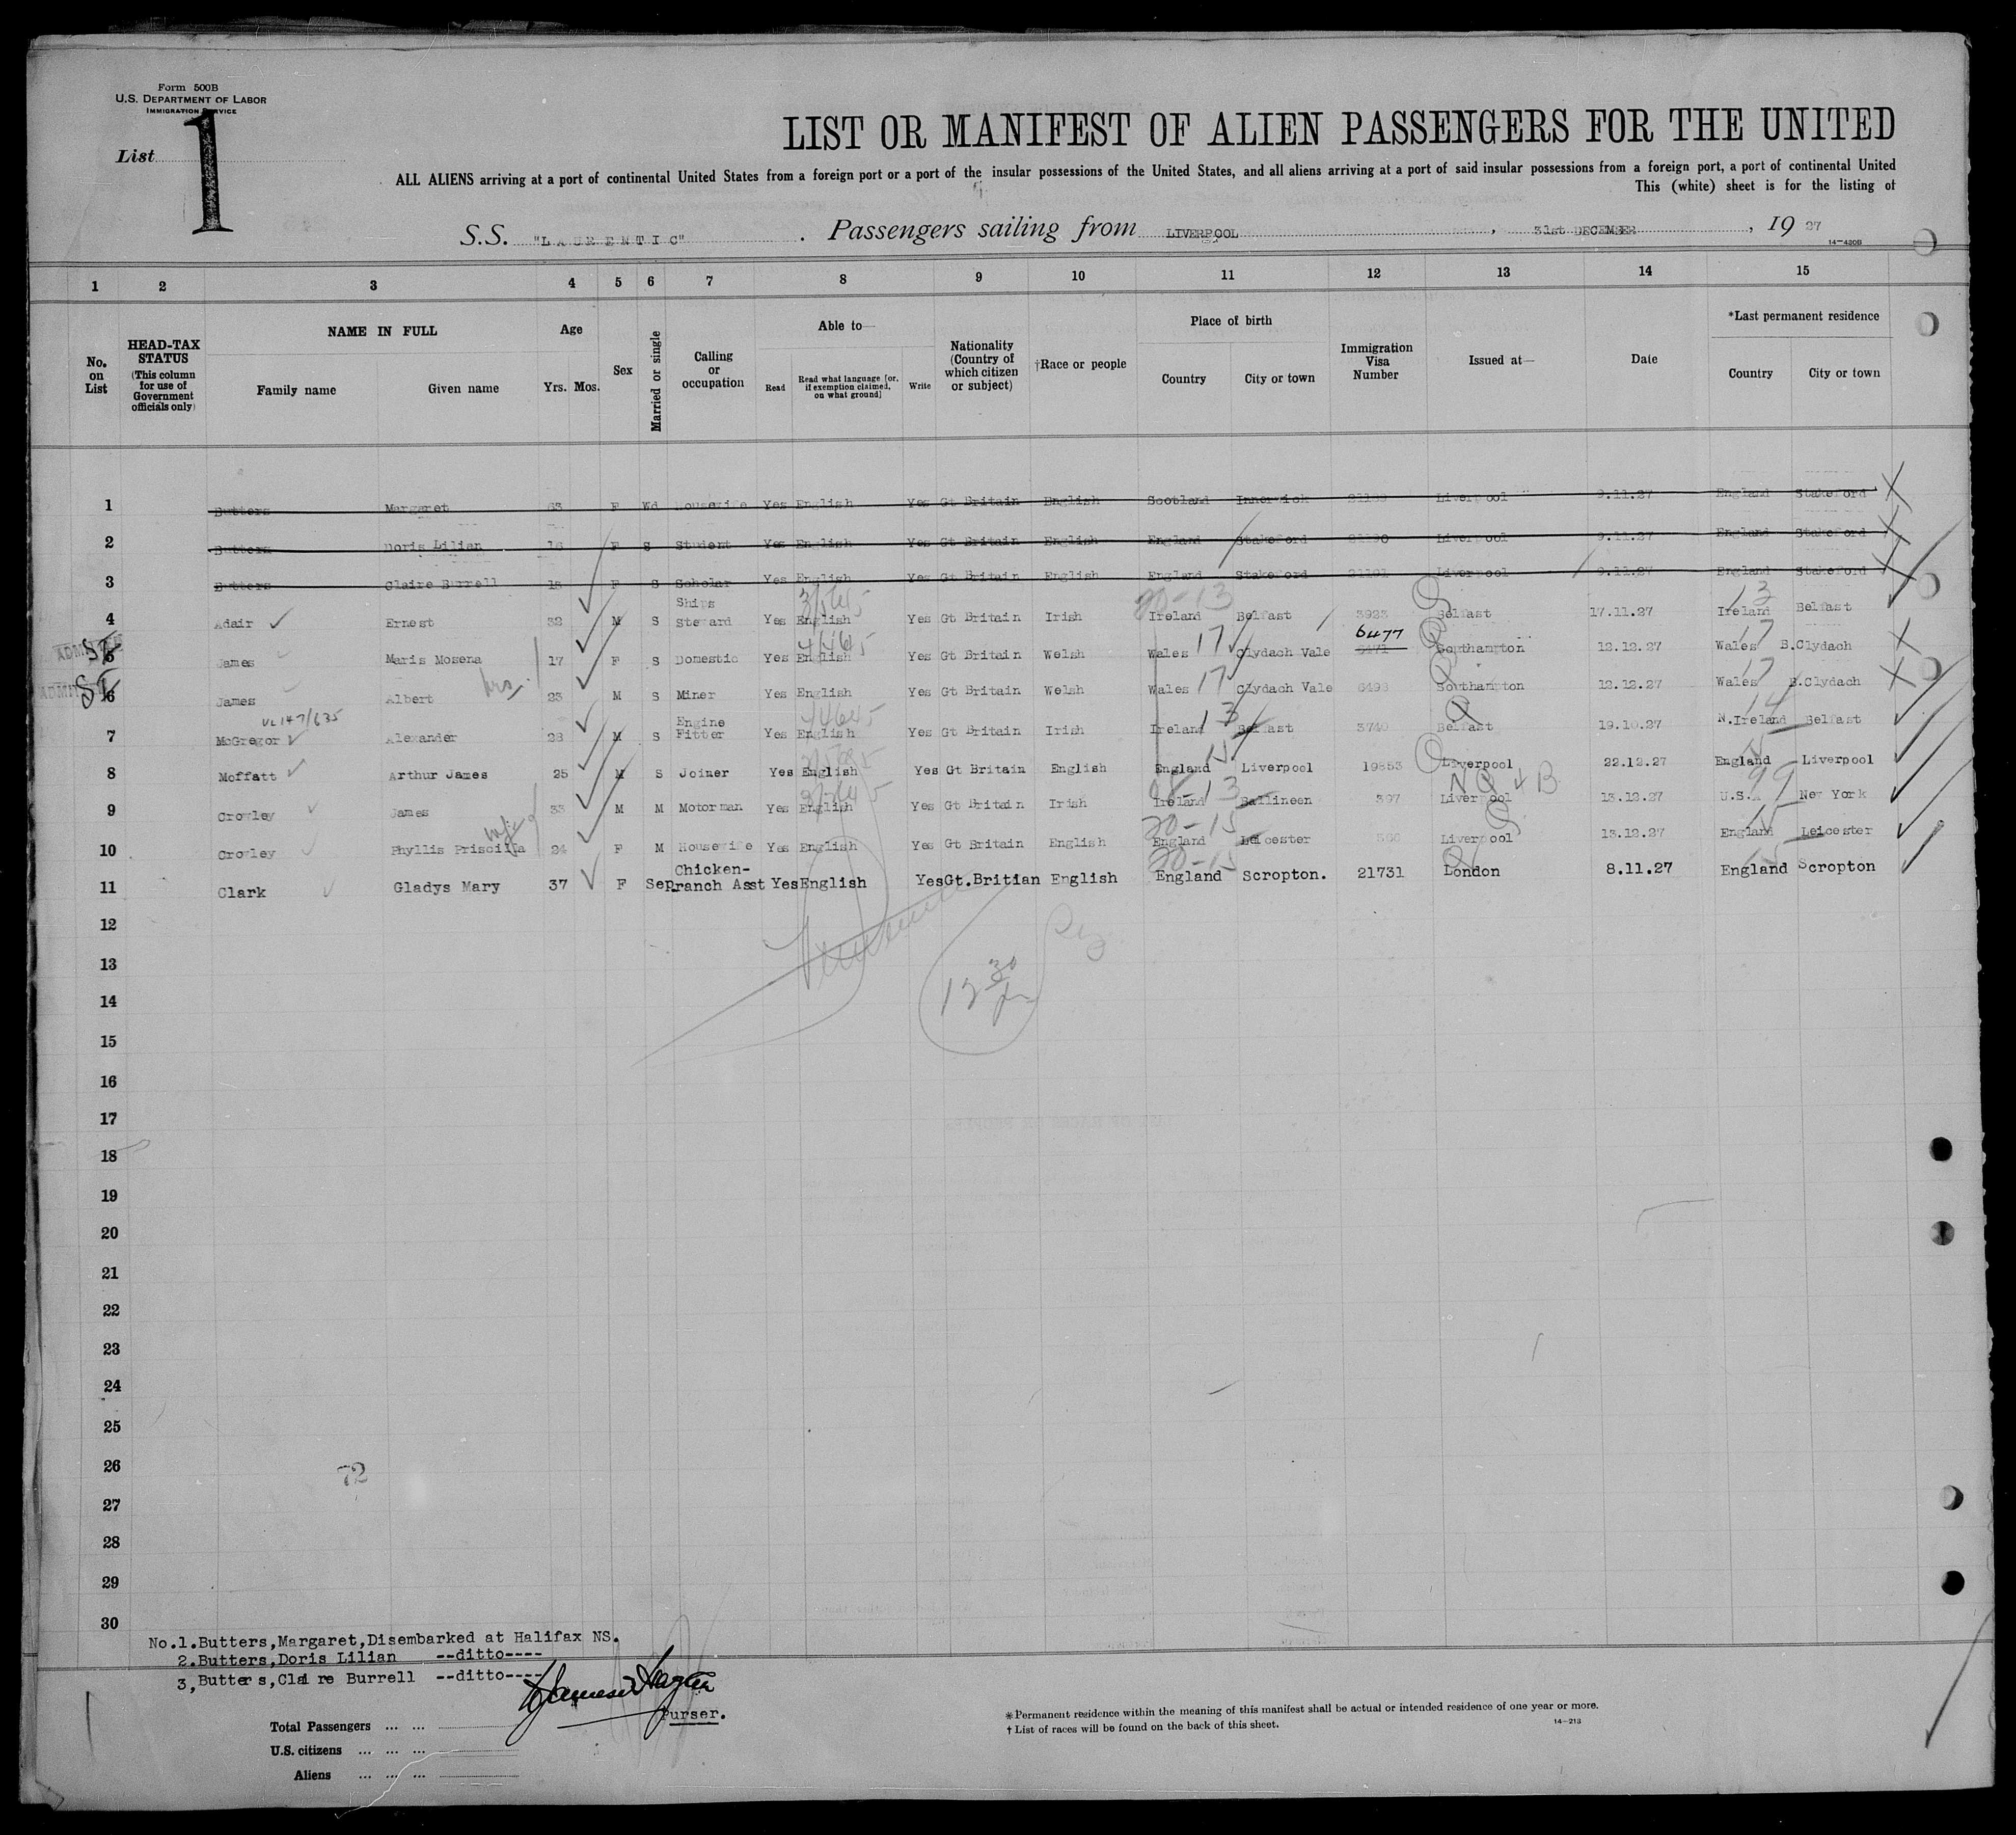 Form 500B
U.S. DEPARTMENT OF LABOR
IMMIGRATION SERVICE
List 1
LIST OR MANIFEST OF ALIEN PASSENGERS FOR THE UNITED
ALL ALIENS arriving at a port of continental United States from a foreign port or a port of the insular possessions of the United States, and all aliens arriving at a port of said insular possessions from a foreign port, a port of continental United
This (white) sheet is for the listing of
S.S. "LAURENTIC". Passengers sailing from LIVERPOOL, 31st DECEMBER, 19 27
14-430B
1 2 3 4 5 6 7 8 9 10 11 12 13 14 15
No. on List
HEAD-TAX STATUS (This column for use of Government officials only)
NAME IN FULL
Family name Given name
Age
Yrs. Mos.
Sex
Married or single
Calling or occupation
Able to—
Read
Read what language [or, if exemption claimed, on what ground]
Write
Nationality (Country of which citizen or subject)
†Race or people
Place of birth
Country City or town
Immigration Visa Number
Issued at—
Date
*Last permanent residence
Country City or town
1 Butters Margaret 63 F Wd Housewife Yes English Yes Gt Britain English Scotland Innerwick Liverpool 9.11.27 England Stakeford X
2 Butters Doris Lilian 16 F S Student Yes English Yes Gt Britain English England Stakeford Liverpool 9.11.27 England Stakeford X
3 Butters Claire Burrell F S Scholar Yes English Yes Gt Britain English England Stakeford 21191 Liverpool 9.11.27 England Stakeford X
20-13 13
4 Adair Ernest 32 M S Ships Steward Yes English Yes Gt Britain Irish Ireland Belfast 3923 Belfast 17.11.27 Ireland Belfast
6477
5 James Maris Mosena 17 F S Domestic Yes English Yes Gt Britain Welsh Wales 17 Clydach Vale 6471 Southampton 12.12.27 Wales 17 B.Clydach X
6 James Albert 23 M S Miner Yes English Yes Gt Britain Welsh Wales 17 Clydach Vale 6498 Southampton 12.12.27 Wales 17 B.Clydach X
14
7 McGregor Alexander 28 M S Engine Fitter Yes English Yes Gt Britain Irish Ireland 13 Belfast 3740 Belfast 19.10.27 N.Ireland Belfast
8 Moffatt Arthur James 25 M S Joiner Yes English Yes Gt Britain English England Liverpool 19853 Liverpool 22.12.27 England Liverpool
99
9 Crowley James 33 M M Motorman Yes English Yes Gt Britain Irish Ireland Ballineen 397 Liverpool 13.12.27 U.S.A New York
wife 20-15 15
10 Crowley Phyllis Priscilla 24 F M Housewife Yes English Yes Gt Britain English England Leicester Liverpool 13.12.27 England Leicester
20-15 15
11 Clark Gladys Mary 37 F Sep Chicken-ranch Asst Yes English Yes Gt.Britian English England Scropton. 21731 London 8.11.27 England Scropton
12
13
14
15
16
17
18
19
20
21
22
23
24
25
26
72
27
28
29
30
No.1.Butters,Margaret,Disembarked at Halifax NS.
2.Butters,Doris Lilian --ditto----
3,Butters,Claire Burrell --ditto----
Purser.
Total Passengers ... ...
U.S. citizens ... ... ...
Aliens ... ... ...
*Permanent residence within the meaning of this manifest shall be actual or intended residence of one year or more.
†List of races will be found on the back of this sheet.
14-213